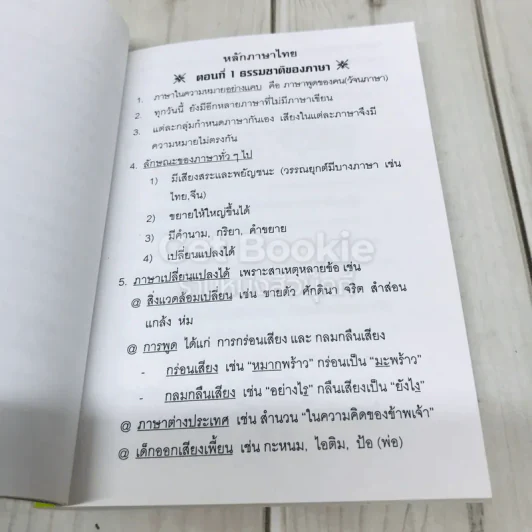 หลักภาษาไทย
※ ตอนที่ 1 ธรรมชาติของภาษา ※
1. ภาษาในความหมายอย่างแคบ คือ ภาษาพูดของคน(วัจนภาษา)
2. ทุกวันนี้ ยังมีอีกหลายภาษาที่ไม่มีภาษาเขียน
3. แต่ละกลุ่มกำหนดภาษากันเอง เสียงในแต่ละภาษาจึงมี
ความหมายไม่ตรงกัน
4. ลักษณะของภาษาทั่ว ๆ ไป
1) มีเสียงสระและพยัญชนะ (วรรณยุกต์มีบางภาษา เช่น
ไทย,จีน)
2) ขยายให้ใหญ่ขึ้นได้
3) มีคำนาม, กริยา, คำขยาย
4) เปลี่ยนแปลงได้
Get Bookie
5. ภาษาเปลี่ยนแปลงได้ เพราะสาเหตุหลายข้อ เช่น
@ สิ่งแวดล้อมเปลี่ยน เช่น ขายตัว ศักดินา จริต สำส่อน
แกล้ง ห่ม
@ การพูด ได้แก่ การกร่อนเสียง และ กลมกลืนเสียง
- กร่อนเสียง เช่น “หมากพร้าว” กร่อนเป็น “มะพร้าว”
- กลมกลืนเสียง เช่น “อย่างไร” กลืนเสียงเป็น “ยังไง”
@ ภาษาต่างประเทศ เช่น สำนวน “ในความคิดของข้าพเจ้า”
@ เด็กออกเสียงเพี้ยน เช่น กะหนม, ไอติม, ป้อ (พ่อ)